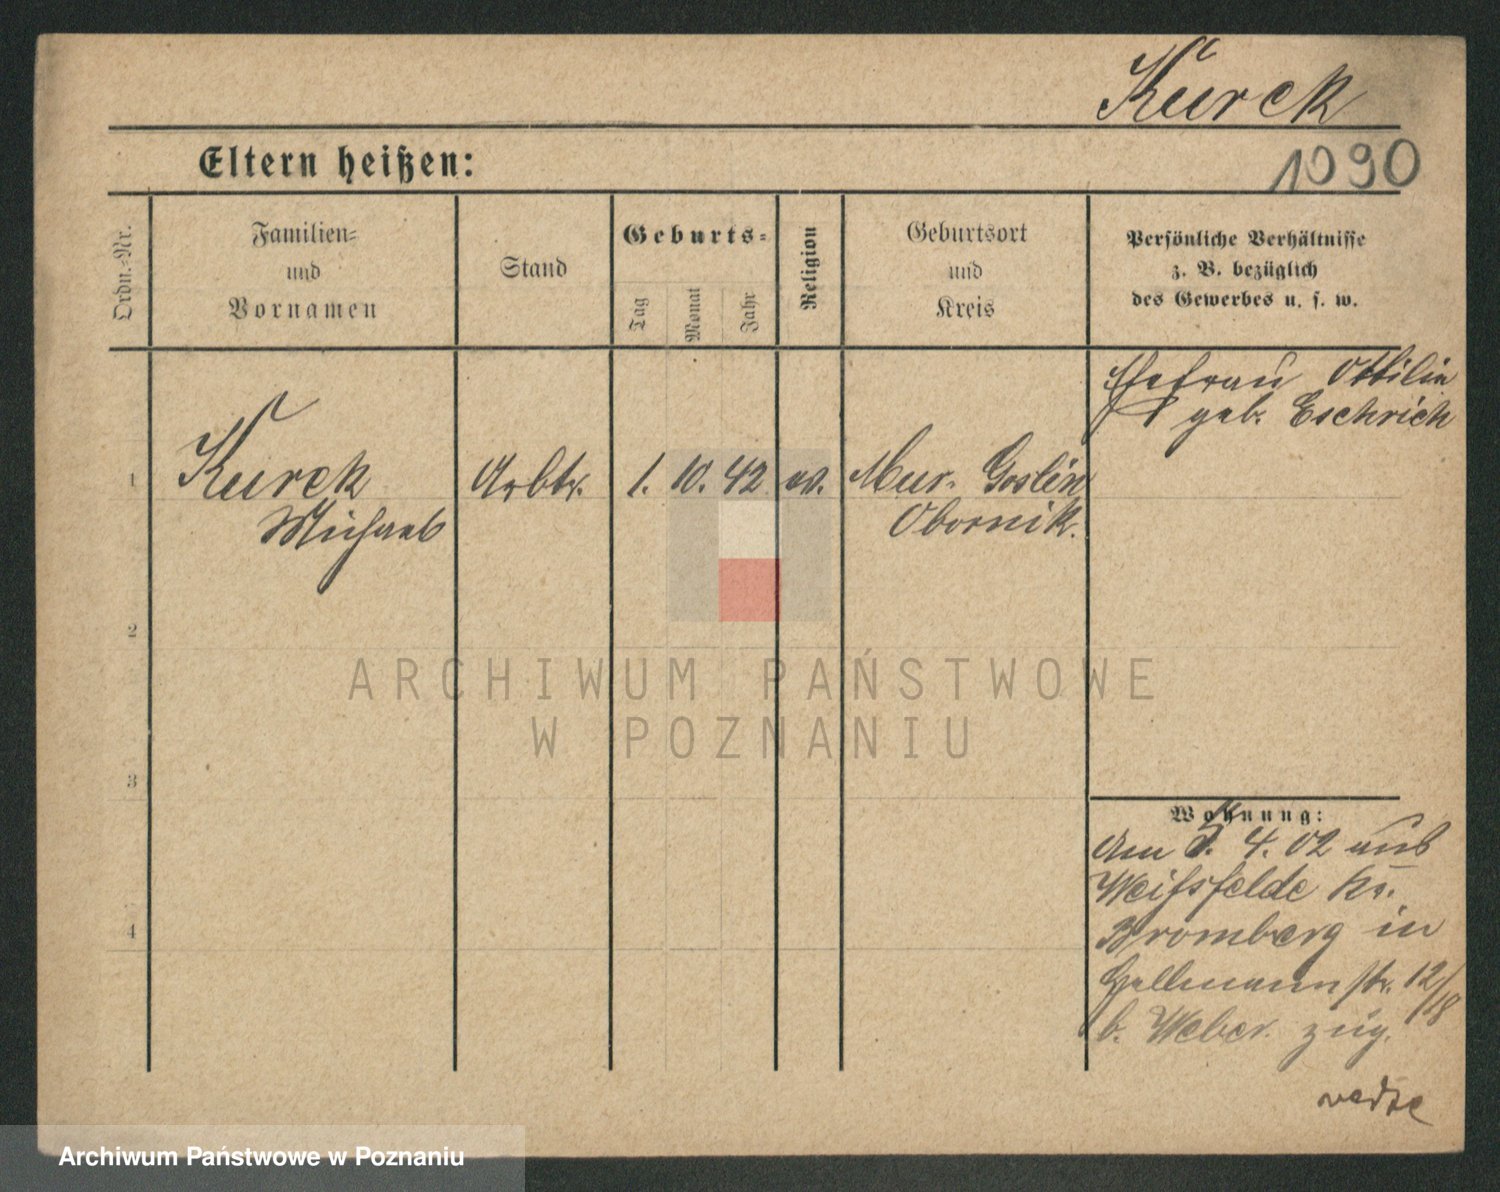 Kurck
Eltern heißen:
1090
Ordn.-Nr.
Familien-
und
Vornamen
Stand
Geburts-
Tag
Monat
Jahr
Religion
Geburtsort
und
Kreis
Persönliche Verhältnisse
z. B. bezüglich
des Gewerbes u. s. w.
Ehefrau Ottilie
geb. Eschrich
1
Kurck
Michael
Arbtr.
1. 10. 42
ev.
Mur. Goslin
Obornik.
2
3
4
ARCHIWUM PAŃSTWOWE
W POZNANIU
Wohnung:
Am 5. 4. 02 aus
Weißfelde Kr.
Bromberg in
12/18
b. Weber. zug.
Archiwum Państwowe w Poznaniu